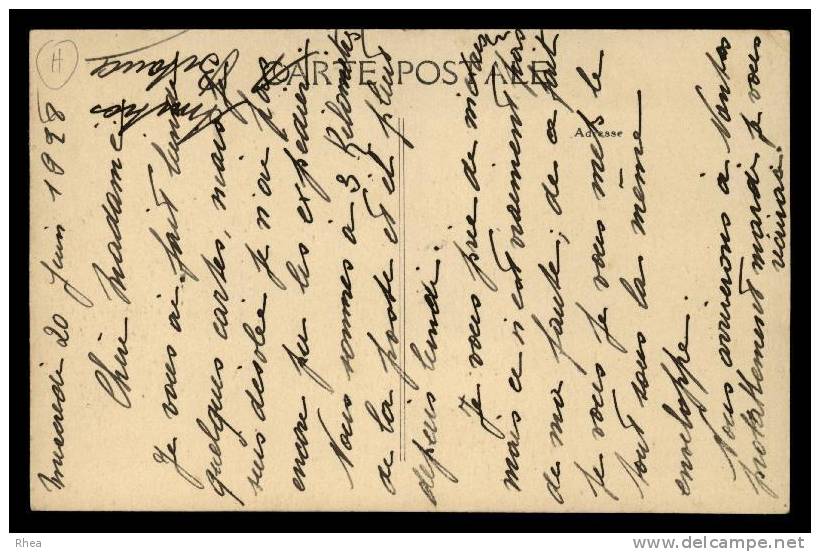 CARTE POSTALE
Adresse
H
Mercredi 20 Juin 1928
Chère Madame
Je vous ai fait
quelques cartes, mais je
suis desolée je n'ai pas
encore pu les expedier
Nous sommes à 3 Kilomètres
de la poste et il pleut
depuis lundi.
Je vous prie de
mais ce n'est vraiment pas
de ma faute; de ce fait
je vous je vous mets le
tout sous la même
enveloppe.
Nous arriverons à Nantes
probablement mardi je vous
Rhea
www.delcampe.net